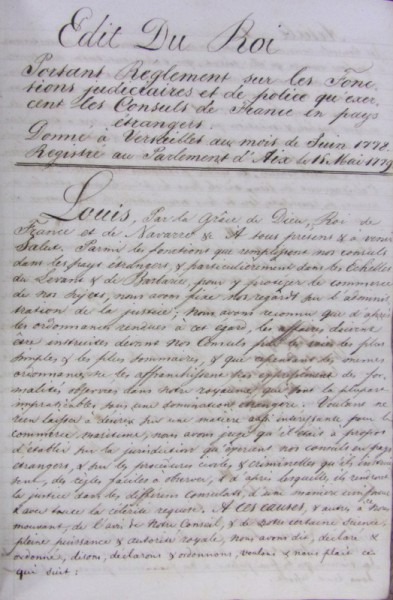 Edit Du Roi
Portant Reglement sur les Fonc
tions judiciaires et de police qu'exer
cent les Consuls de France en pays
étrangers.
Donné à Versailles au mois de Juin 1778.
Registré au Parlement d'Aix le 15. Mai 1779
Louis, Par la Grâce de Dieu, Roi de
France et de Navarre & A tous présent & à venir
Salut. Parmi les fonctions que remplissent nos consuls
dans les pays étrangers, & particulièrement dans les Echelles
du Levant & de Barbarie, pour y protéger le commerce
de nos Sujets, nous avons fixé nos regards sur l'adminis
tration de la justice; Nous avons reconnu que d'après
les ordonnances rendues à cet égard, les affaires doivent
être instruites devant nos Consuls par les voies les plus
simples & les plus sommaires, & que cependant les mêmes
ordonnances ne les affranchissent pas expressément des for
malités observées dans notre royaume, qui sont la plupart
impraticables sous une domination étrangère. Voulant ne
rien laisser à désirer sur une matière aussi intéressante pour le
commerce maritime, nous avons jugé qu'il était à propos
d'établir sur la jurisdiction qu'exercent nos consuls en pays
étrangers, & sur les procédures civiles & criminelles qu'ils instrui
sent, des règles faciles à observer, & d'après lesquelles ils rendront
la justice dans les différens consulats, d'une manière uniforme
& avec toute la célérité requise. A ces causes, & autres à Nous
mouvant, de l'avis de Notre Conseil, & de Notre certaine Science,
pleine puissance & autorité royale, Nous avons dit, déclaré &
ordonné, disons, déclarons & ordonnons, voulons & nous plait ce
qui suit: